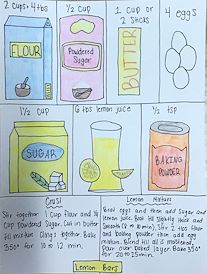 2 cups + 4 tbs
1/2 cup
1 cup or
2 sticks
4 eggs
FLOUR
Powdered
Sugar
BUTTER
1 1/2 cup
6 tbs lemon juice
1/2 tsp
SUGAR
BAKING
POWDER
Crust
Stir together 1 cup flour and 1/2
cup powdered sugar. Cut in butter
til mixture clings together. Bake
350° for 10 to 12 min.
Lemon Mixture
Beat eggs and then add sugar and
lemon juice. Beat til slightly thick and
smooth (8 to 10 min). Stir 2 tbs flour
and baking powder then add egg
mixture. Blend til all is moistened.
Pour over baked layer. Bake 350°
for 20 to 25 min.
Lemon Bars